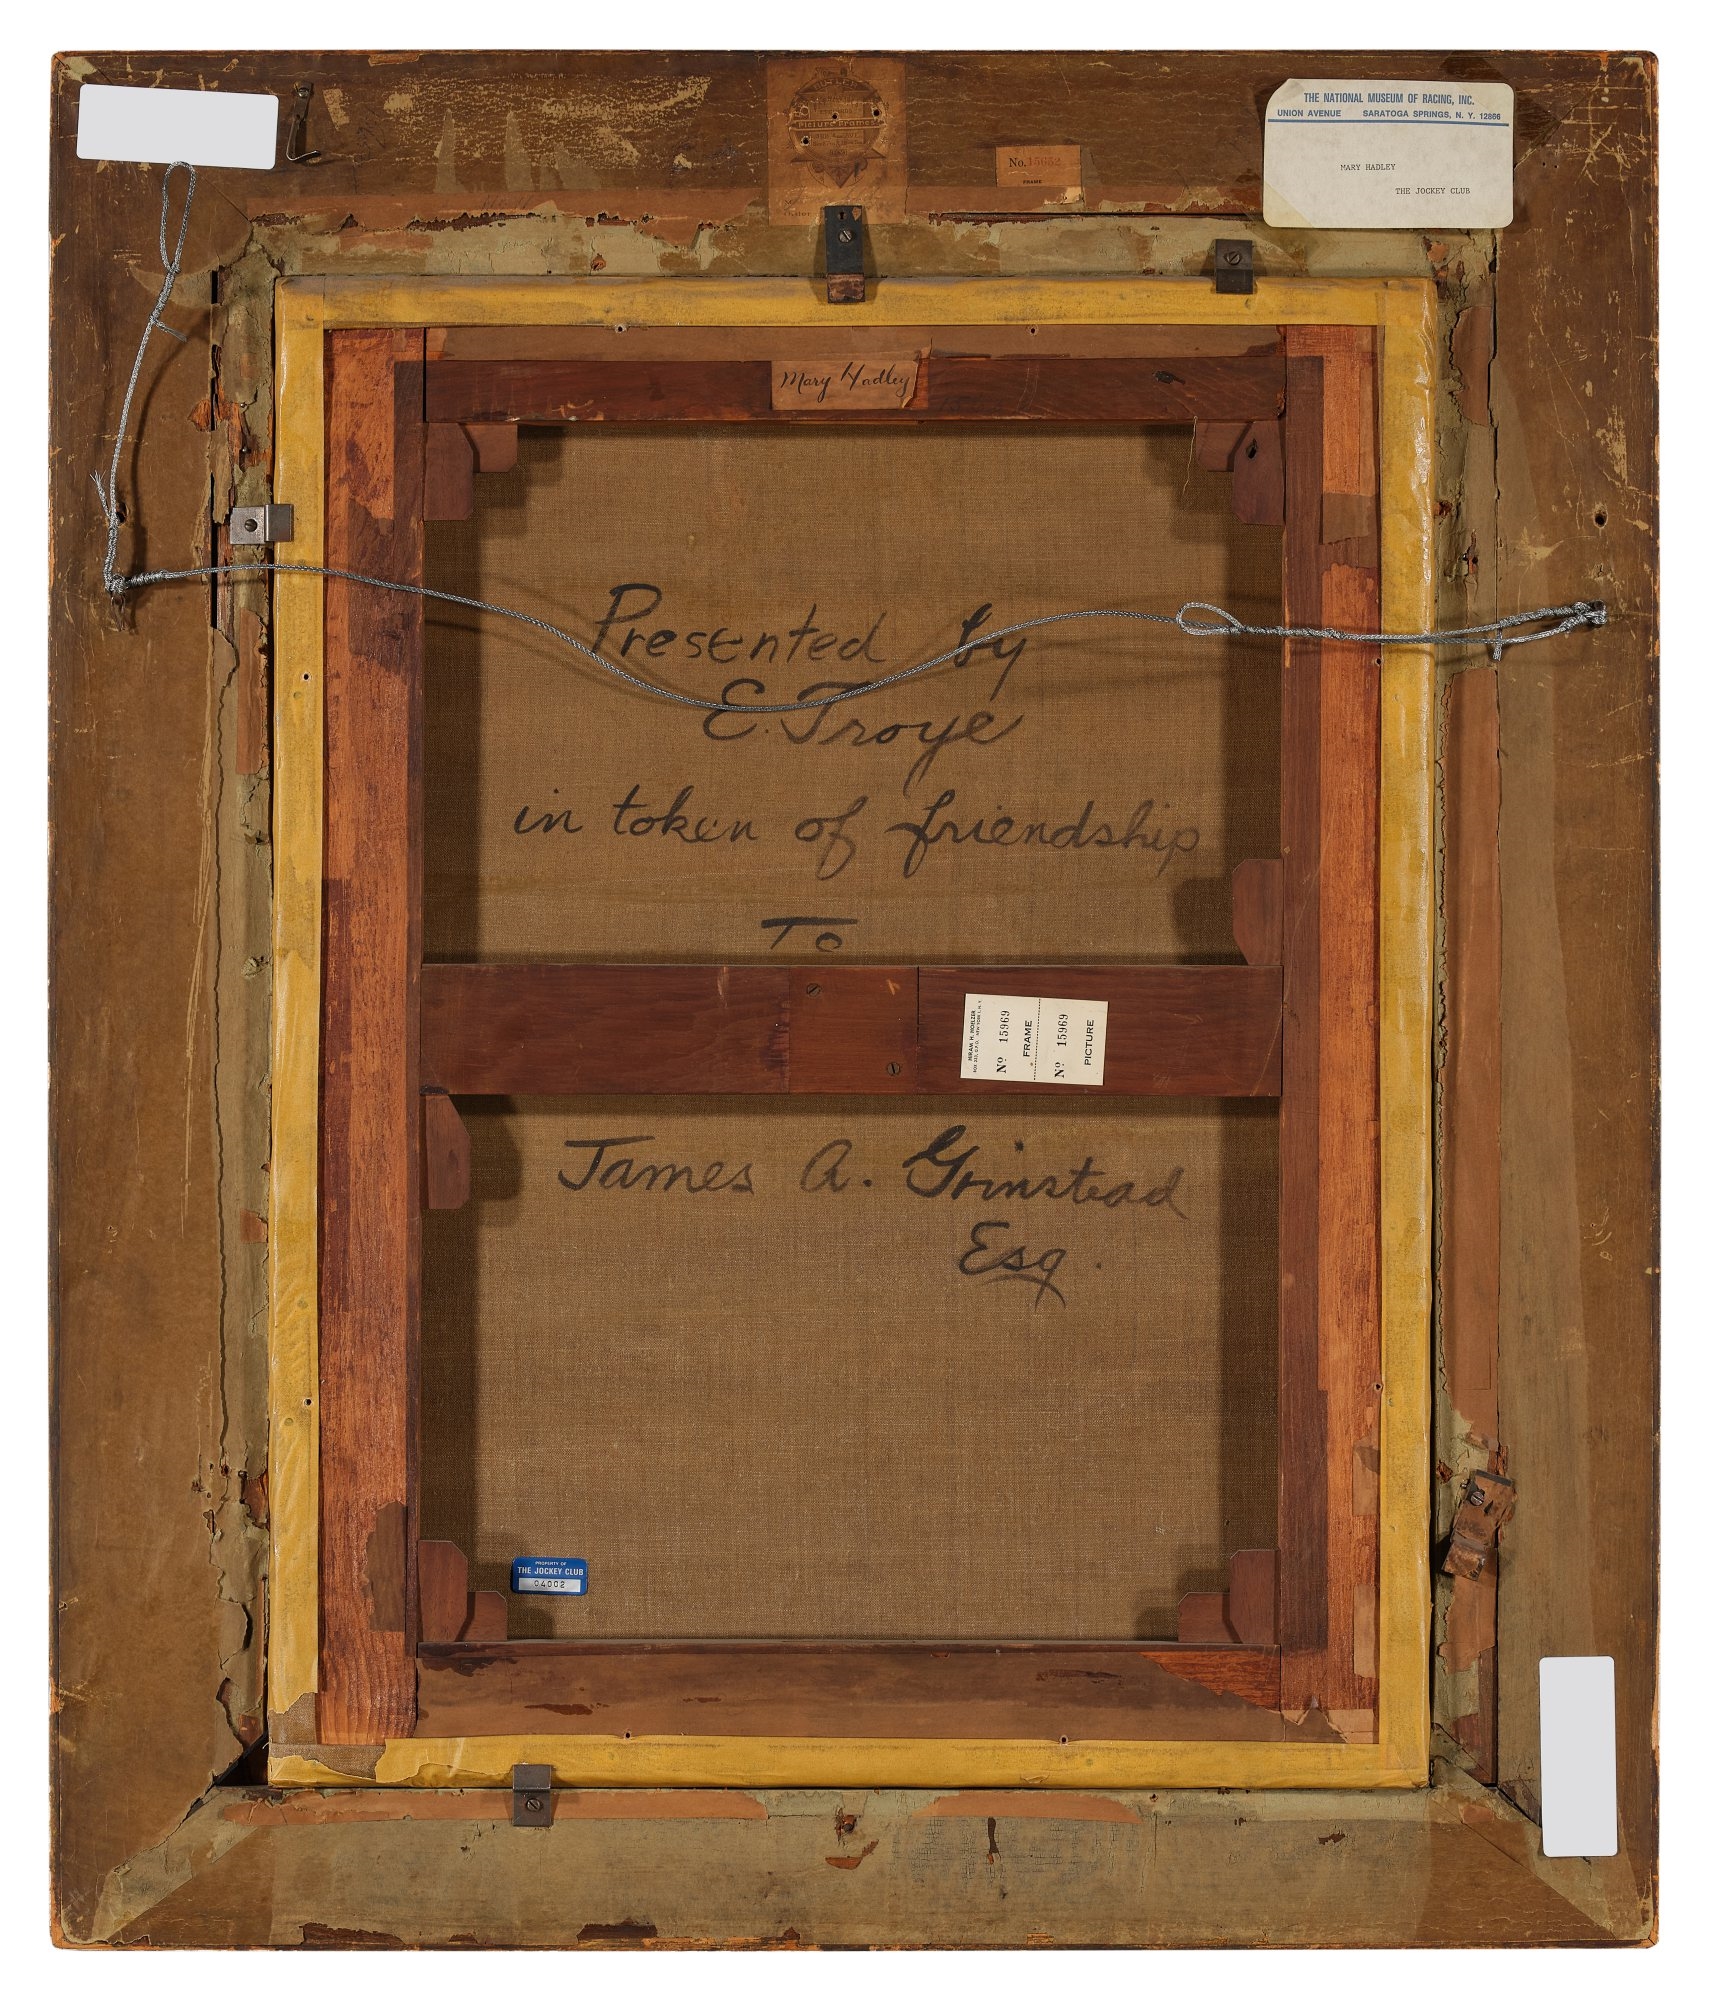 THE NATIONAL MUSEUM OF RACING, INC.
UNION AVENUE SARATOGA SPRINGS, N. Y. 12866
MARY HADLEY
THE JOCKEY CLUB
Picture Frames
No. 15632
FRAME
Mary Hadley
Presented by
E. Troye
in token of friendship
To
HIRAM H. HOELZER
BOX 253, G.P.O. NEW YORK 1, N.Y.
No 15969
FRAME
No 15969
PICTURE
James A. Grinstead
Esq.
PROPERTY OF
THE JOCKEY CLUB
04002